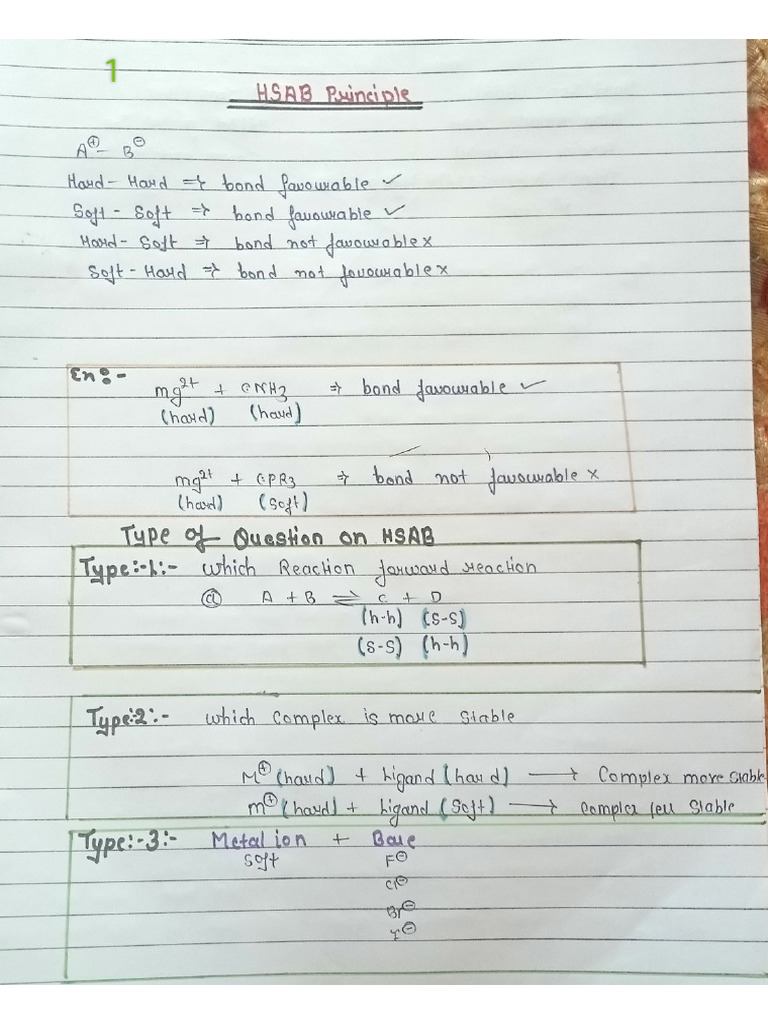 1
HSAB Principle
A⊕– B⊖
Hard - Hard ⇒ bond favourable ✓
Soft - Soft ⇒ bond favourable ✓
Hard - Soft ⇒ bond not favourable ×
Soft - Hard ⇒ bond not favourable ×
Ex:-
mg²⁺ + :NH₃ ⇒ bond favourable ✓
(hard) (hard)
mg²⁺ + :PR₃ ⇒ bond not favourable ×
(hard) (Soft)
Type of Question on HSAB
Type:-1:- which Reaction forward reaction
ⓐ A + B ⇌ C + D
(h-h) (s-s)
(s-s) (h-h)
Type:2:- which Complex is more Stable
M⊕ (hard) + Ligand (hard) ⟶ Complex more Stable
m⊕ (hard) + Ligand (Soft) ⟶ Complex less Stable
Type:-3:- Metal ion + Base
Soft F⊖
Cl⊖
Br⊖
I⊖